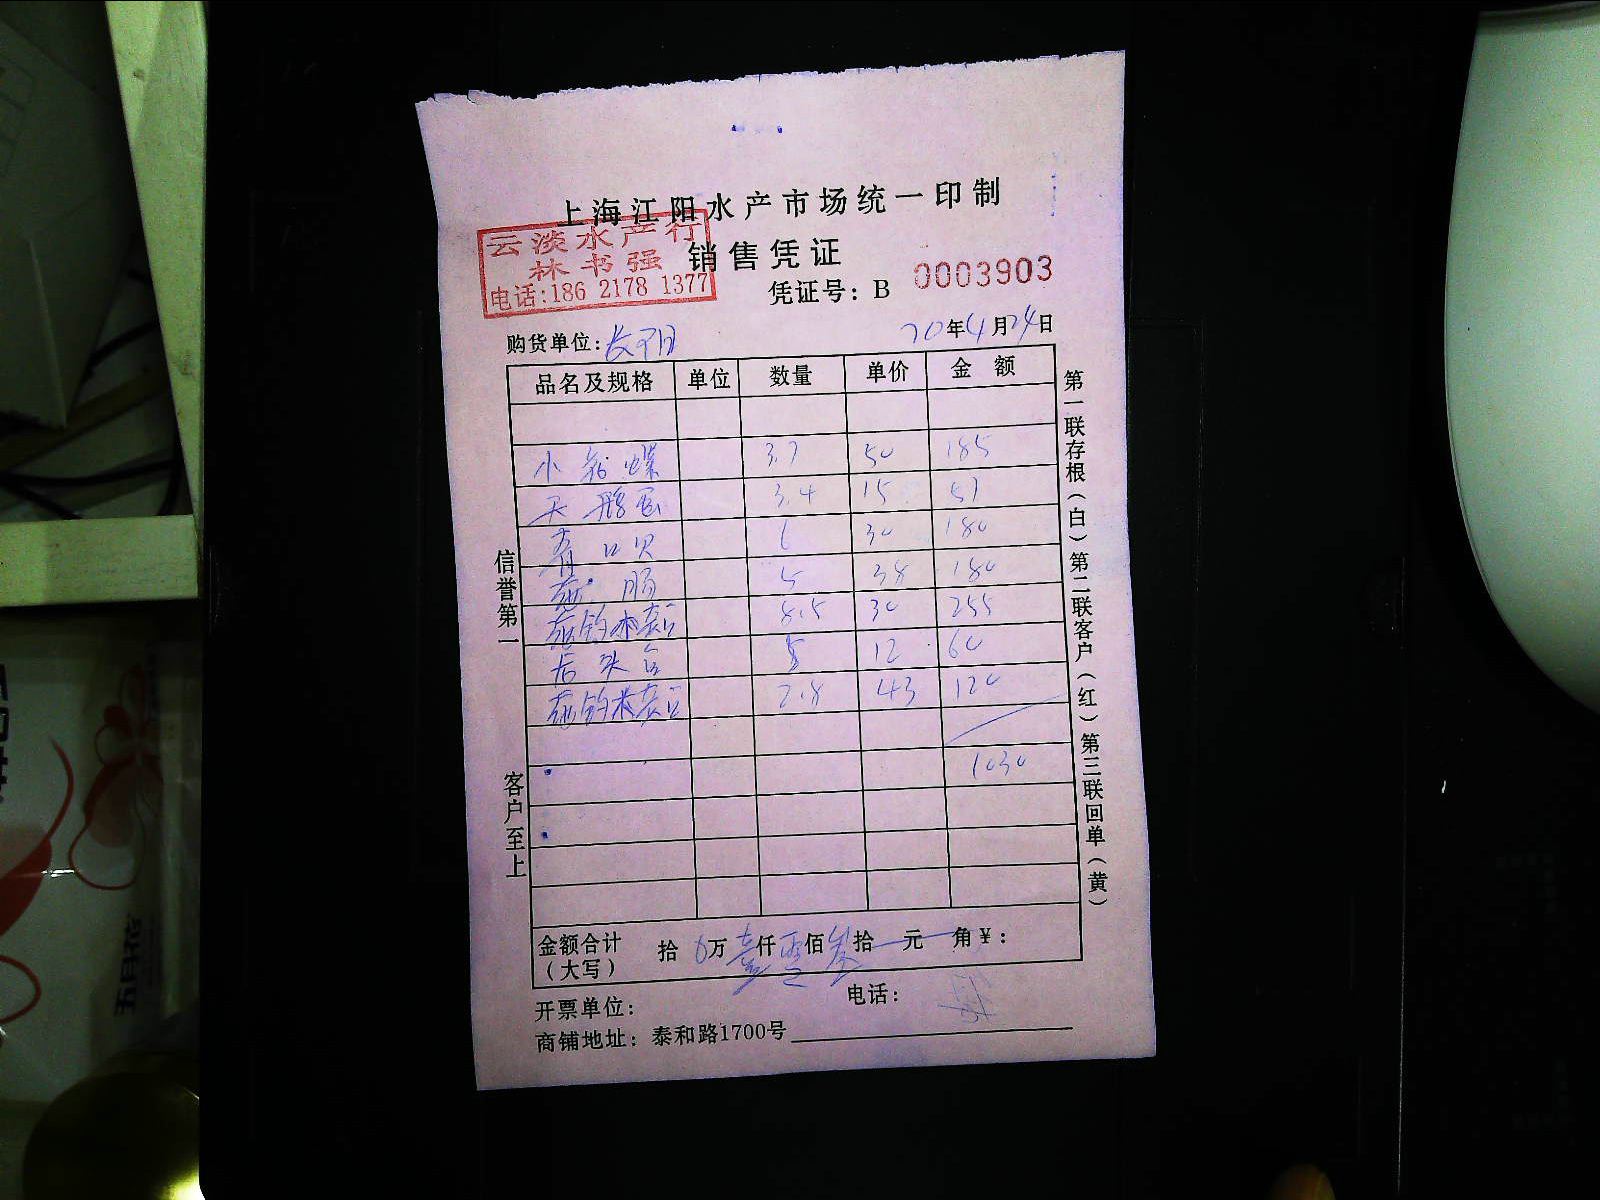 上海江阳水产市场统一印制
云淡水产行
林书强
电话:186 2178 1377
销售凭证
凭证号: B 0003903
购货单位: 长阳
20年4月24日
品名及规格 单位 数量 单价 金额
小 螺 3.7 50 185
天鹅蛋 3.4 15 51
青口贝 6 30 180
肠 5 38 180
8.5 30 255
5 12 60
2.8 43 120
1030
金额合计(大写) 拾 0万壹仟零佰叁拾 元 角¥:
开票单位:
电话:
商铺地址: 泰和路1700号
信誉第一
客户至上
第一联存根(白)第二联客户(红)第三联回单(黄)
五月花